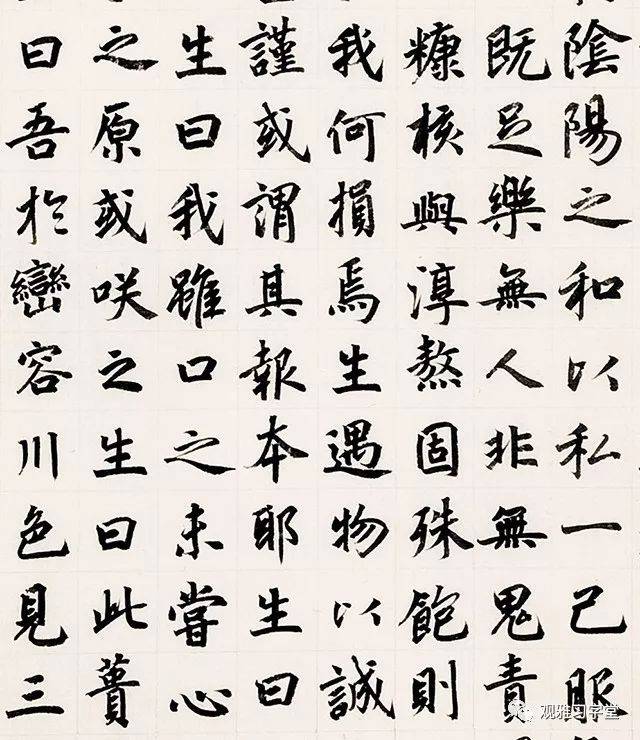 陰陽之和以私一己服
既足樂無人非無鬼責
糠核與淳熬固殊飽則
我何損焉生遇物以誠
謹或謂其報本耶生曰
生曰我雖口之未嘗心
之原或咲之生曰此蕢
曰吾於巒容川色見三
观雅习学堂